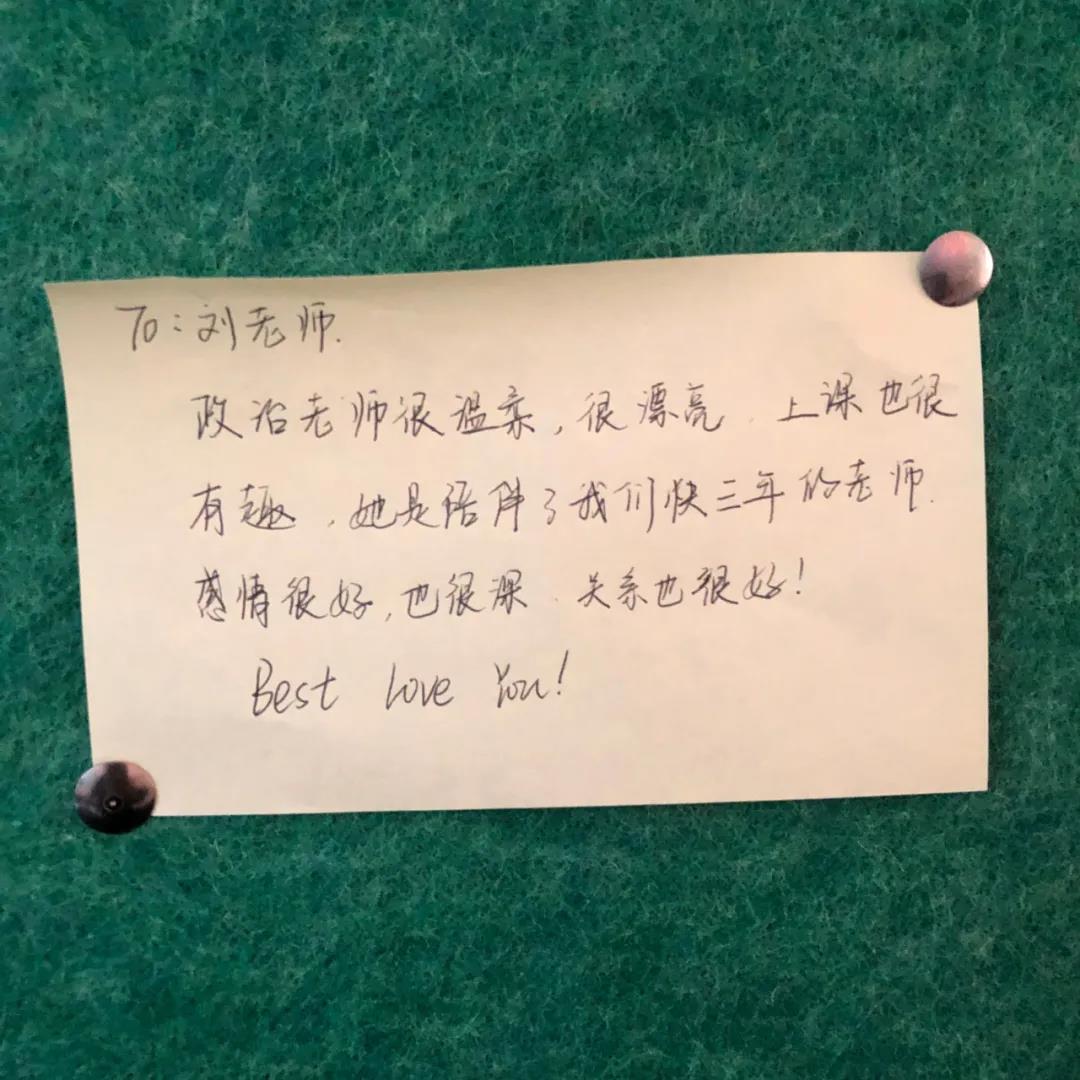 To:刘老师.
政治老师很温柔,很漂亮.上课也很
有趣.她是陪伴了我们快三年的老师.
感情很好,也很深.关系也很好!
Best love You!